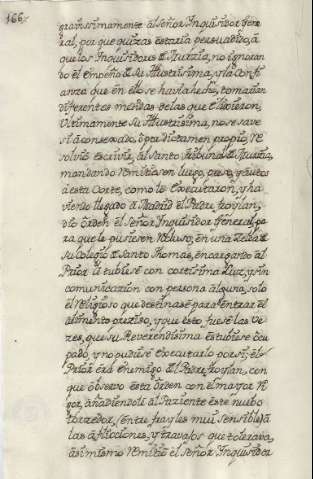 166
gravissimamente al Señor Inquisidor Gene
ral, por que quizas estaria persuadido, à
que los Inquisidores de Murzia, no ignoran
do el empeño de Su Illustrisima, y la Confi
anza que en ello se havia hecho, tomarian
diferentes medidas de las que
Ultimamente Su Illustrisima, no se save
si aconsexado, ò por dictamen propio, re
solvio escrivir, al Santo Tribunal de Murzia,
mandando remitiesen luego, reo, y autos
à esta Corte, como lo executaron, y ha
viendo llegado à Madrid el Padre Froylan,
dio orden el Señor Inquisidor General, pa
ra que le pusiesen recluso, en una Zelda de
su Colegio de Santo Thomas, encargando al
Prior le tubiese con cortisima Luz, y sin
comunicazion con persona alguna, solo
el Religioso que destinase para entrar el
alimento preziso, y que esto fuese las ve
zes, que su Reverendisima estubiese ocu
pado, y no pudiese executarlo por si; el
Prior era enemigo de el Padre Froylan, con
que observo esta orden con el mayor ri
gor, añadiendole al Paziente este nuebo
torzedor, (entre frayles mui sensible) à
las aflicciones, y travajos que tolerava,
asimismo remitio el Señor Inquisidor